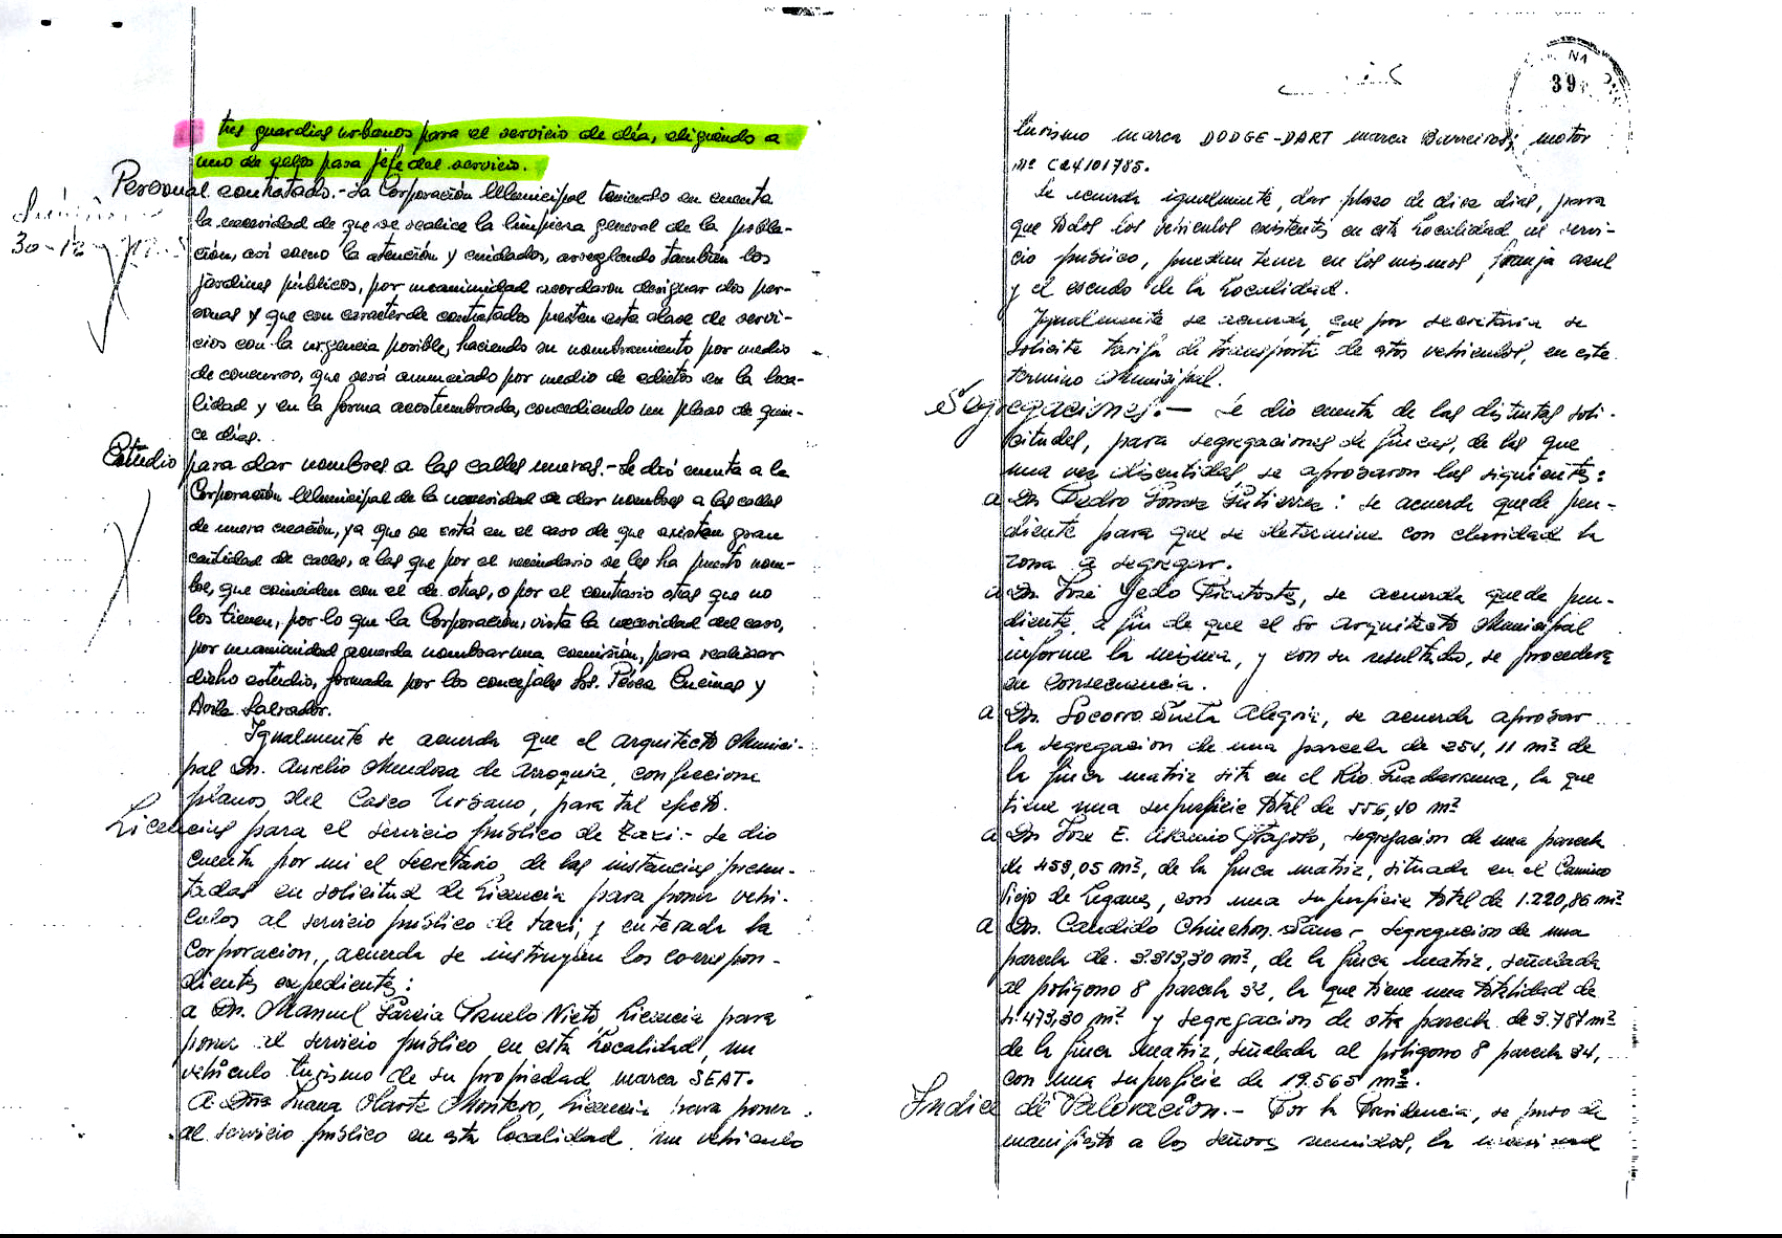 tres guardias urbanos para el servicio de día, eligiendo a
uno de ellos para jefe del servicio.
Personal contratado.- La Corporación Municipal teniendo en cuenta
la necesidad de que se realice la limpieza general de la pobla-
30-12-
ción, así como la atención y cuidados, arreglando también los
jardines públicos, por unanimidad acordaron designar dos per-
sonas y que con caracter de contratados presten esta clase de servi-
cios con la urgencia posible, haciendo su nombramiento por medio
de concurso, que será anunciado por medio de edictos en la loca-
lidad y en la forma acostumbrada, concediendo un plazo de quin-
ce días.
Estudio para dar nombres a las calles nuevas.- Se dió cuenta a la
Corporación Municipal de la necesidad de dar nombres a las calles
de nueva creación, ya que se está en el caso de que existen gran
cantidad de calles, a las que por el vecindario se les ha puesto nom-
bre, que coinciden con el de otras, o por el contrario otras que no
los tienen, por lo que la Corporación, vista la necesidad del caso,
por unanimidad acuerda nombrar una comisión, para realizar
dicho estudio, formada por los concejales Srs. Pérez Encinas y
Avila Salvador.
Igualmente se acuerda que el arquitecto Munici-
pal Dn. Aurelio Mendoza de Arroquia, confeccione
planos del Casco Urbano, para tal efecto.
Licencias para el servicio público de taxi:- Se dio
cuenta por mi el Secretario de las instancias presen-
tadas en solicitud de Licencia para poner vehi-
culos al servicio público de taxi, y enterada la
Corporacion, acuerda se instruyan los correspon-
dientes expedientes:
a Dn. Manuel Garcia Pozuelo Nieto Licencia para
poner al servicio público en esta Localidad, un
vehiculo turismo de su propiedad marca SEAT.
A Dña Juana Olarte Montero, Licencia para poner
al servicio público en esta localidad un vehiculo
39
turismo marca DODGE-DART marca Barreiros, motor
nº C24101785.
Se acuerda igualmente, dar plazo de diez dias, para
que todos los vehiculos existentes en esta Localidad al servi-
cio público, puedan tener en los mismos franja azul
y el escudo de la Localidad.
Igualmente se acuerda, que por secretaria se
solicite tarifa de transporte de estos vehiculos, en este
termino Municipal.
Segregaciones.- Se dio cuenta de las distintas soli-
citudes, para segregaciones de fincas, de las que
una vez discutidas, se aprobaron las siguientes:
a Dn. Pedro Gomez Gutierrez: se acuerda quede pen-
diente para que se determine con claridad la
zona a segregar.
a Dn. José Yedo, se acuerda quede pen-
diente, a fin de que el Sr Arquitecto Municipal
informe la misma, y con su resultado, se procedera
en consecuencia.
a Dn. Socorro Alegria, se acuerda aprobar
la segregacion de una parcela de 254,11 m² de
la finca matriz sita en el Rio Guadarrama, la que
tiene una superficie total de 556,40 m²
a Dn Jose E. Asenio Fragoso, segregacion de una parcela
de 459,05 m², de la finca matriz, situada en el Camino
Viejo de Leganes, con una superficie total de 1.220,86 m²
a Dn. Candido Chinchon - Segregacion de una
parcela de 3.313,30 m², de la finca matriz, señalada
al poligono 8 parcela 32, la que tiene una totalidad de
4.473,30 m² y segregacion de otra parcela de 3.787 m²
de la finca matriz, señalada al poligono 8 parcela 34,
con una superficie de 19.565 m².
Indice de Valoración.- Por la Providencia, se puso de
manifiesto a los señores reunidos, la necesidad